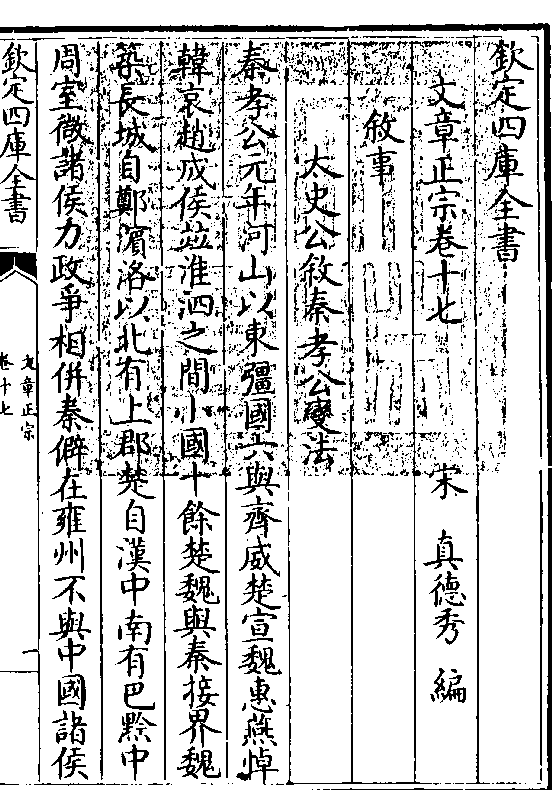 欽定四庫全書
文章正宗卷十七
宋 真德秀 編
敘事
太史公敘秦孝公變法
秦孝公元年河山以東彊國六與齊威楚宣魏惠燕悼
韓哀趙成侯並淮泗之間小國十餘楚魏與秦接界魏
築長城自鄭濱洛以北有上郡楚自漢中南有巴黔中
周室微諸侯力政爭相併秦僻在雍州不與中國諸侯
欽定四庫全書
文章正宗
卷十七
一